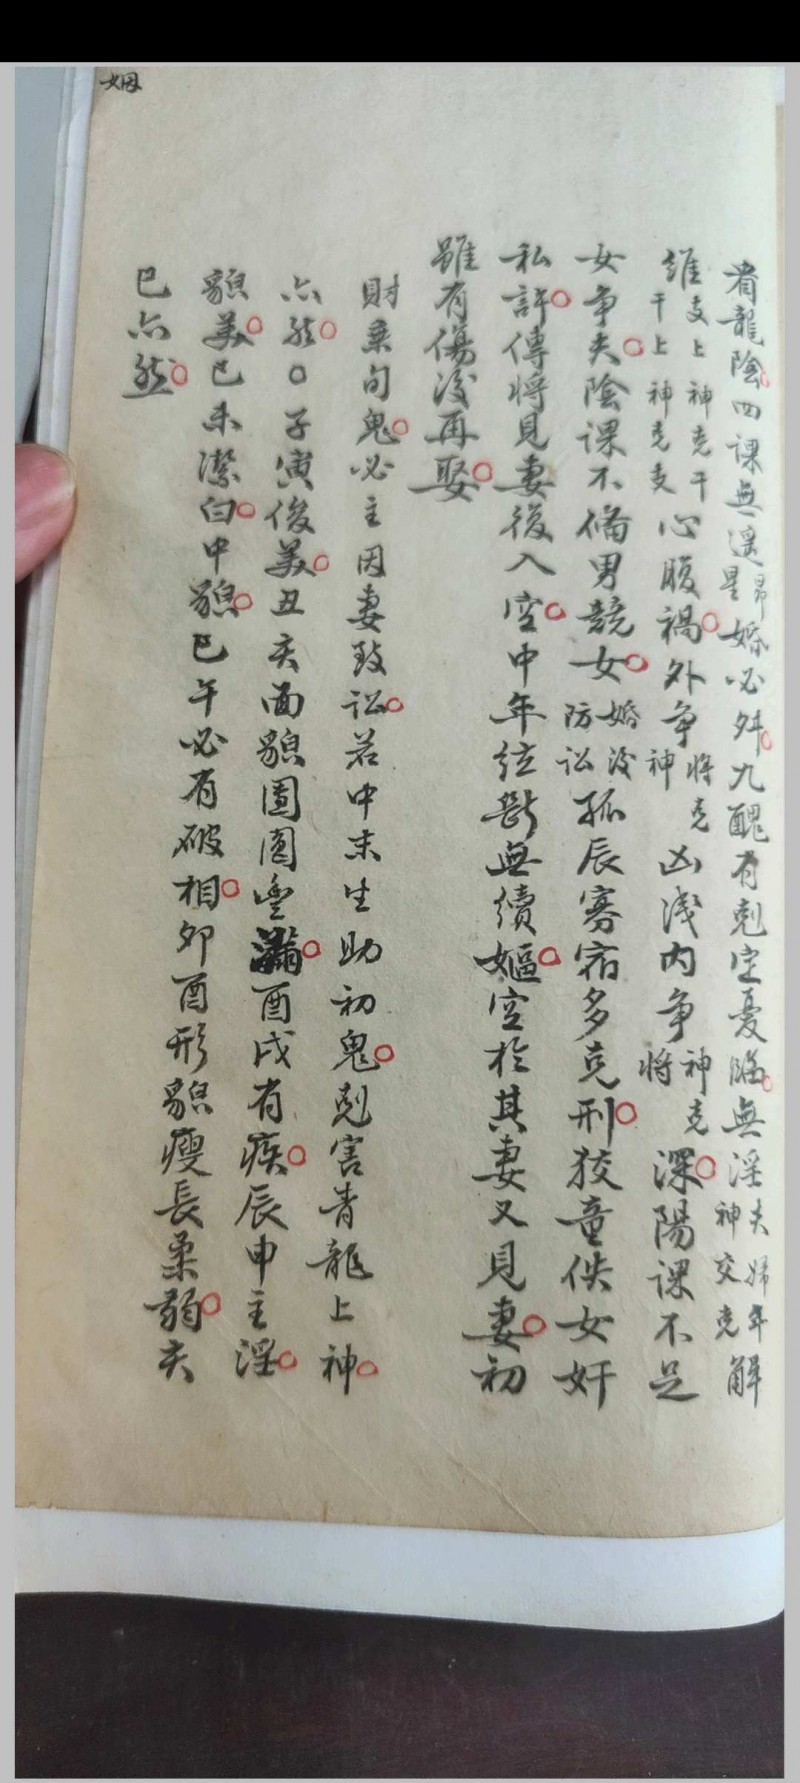 看龍陰。四課無遥昴星婚必舛。九醜有剋定憂臨。無淫夫婦年神交克解
離支上神克干干上神克支心腹禍。外争將克神凶淺内争神克將深。陽課不足
女争夫。陰課不備男競女。婚後防訟孤辰寡宿多克刑。狡童佚女奸
私許。傳將見妻後入空。中年絃斷無續嫗。空於其妻又見妻。初
雖有傷後再娶。
財乘句鬼。必主因妻致訟。若中末生助初鬼。剋害青龍上神。
亦然。○子寅俊美。丑亥面貌團圓豐滿。酉戌有疾。辰申主淫。
貌美。巳未潔白中貌。巳午必有破相。卯酉形貌瘦長柔弱。亥
巳亦然。
姻